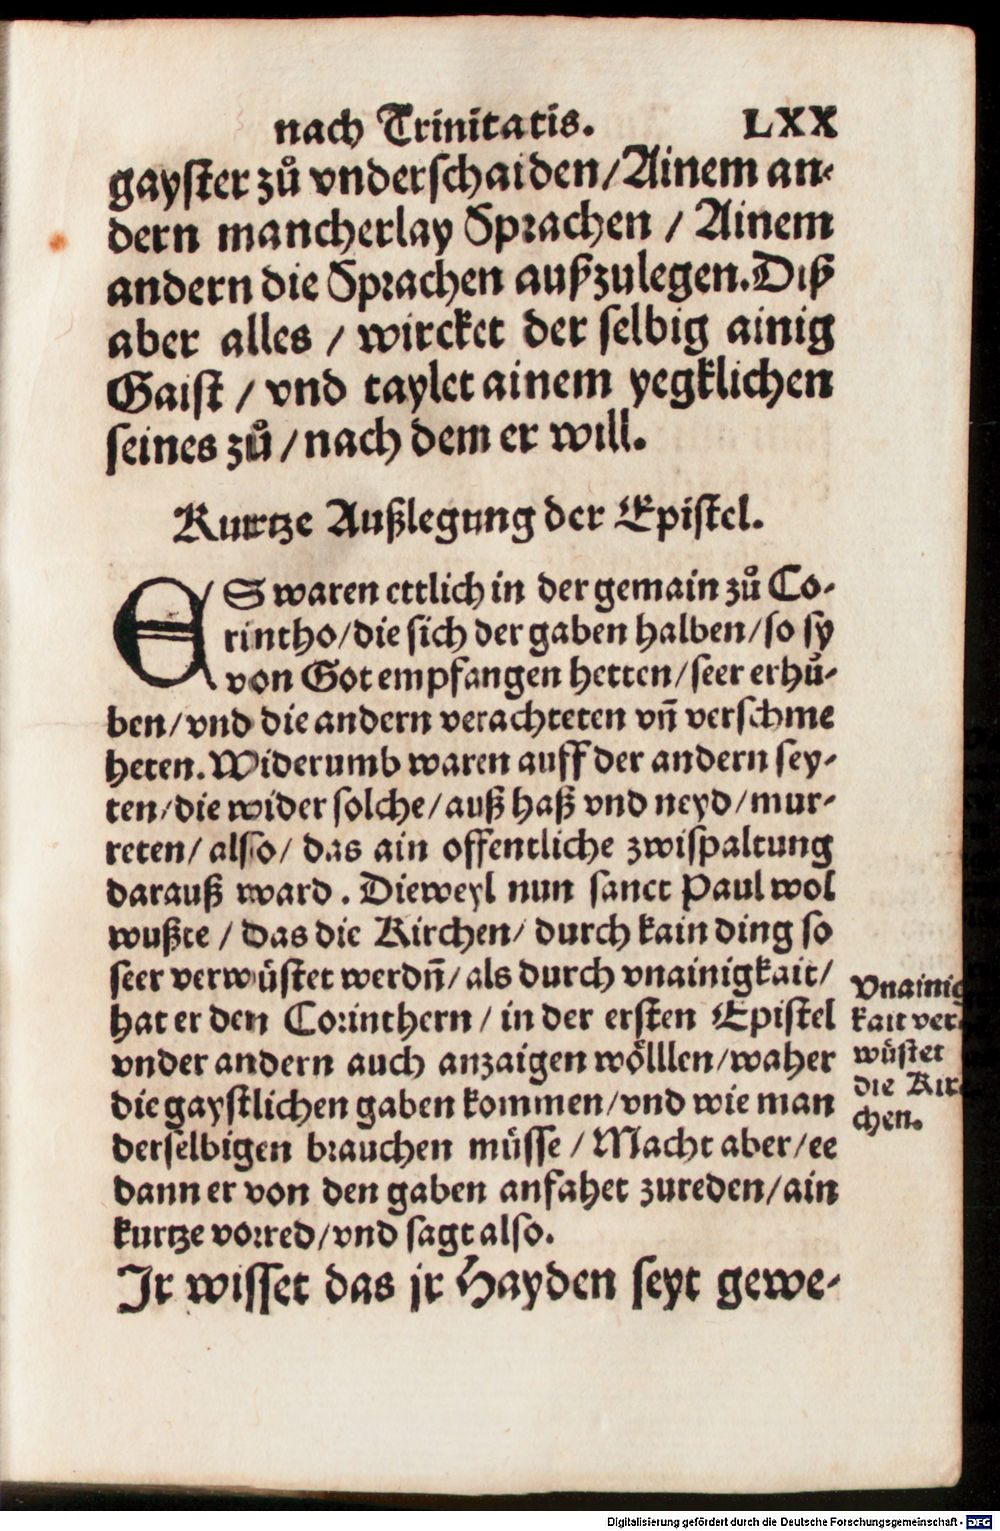 nach Trinitatis. LXX
gayster zů vnderschaiden/Ainem an-
dern mancherlay Sprachen / Ainem
andern die Sprachen außzulegen. Diß
aber alles / wircket der selbig ainig
Gaist / vnd taylet ainem yegklichen
seines zů / nach dem er will.
Kurtze Außlegung der Epistel.
ES waren ettlich in der gemain zů Co-
rintho/die sich der gaben halben/so sy
von Got empfangen hetten/seer erhů-
ben/vnd die andern verachteten vñ verschme
heten. Widerumb waren auff der andern sey-
ten/die wider solche/auß haß vnd neyd/mur-
reten/ also/ das ain offentliche zwispaltung
darauß ward. Dieweyl nun sanct Paul wol
wußte / das die Kirchen/ durch kain ding so
seer verwüstet werdñ/als durch vnainigkait/
hat er den Corinthern / in der ersten Epistel
vnder andern auch anzaigen wölllen/waher
die gaystlichen gaben kommen/vnd wie man
derselbigen brauchen müsse / Macht aber/ee
dann er von den gaben anfahet zureden/ain
kurtze vorred/vnd sagt also.
Jr wisset das jr Hayden seyt gewe-
Vnainig
kait ver-
wüstet
die Kir-
chen.
Digitalisierung gefördert durch die Deutsche Forschungsgemeinschaft - DFG